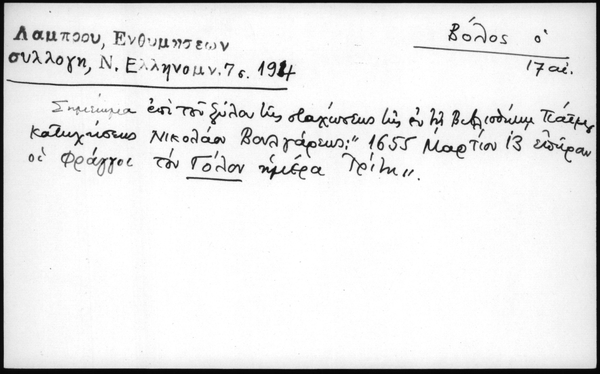 Λαμπρου, Ενθυμησεων
συλλογη, Ν. Ελληνομν. 7 σ. 194
Βόλος ὁ
17 αἰ.
Σημείωμα ἐπὶ τοῦ ξύλου τῆς σταχώσεως τῆς ἐν τῇ Βιβλιοθήκῃ
κατηχήσεως Νικολάου Βουλγάρεως: "1655 Μάρτιου 13 ἐπῆραν
οἱ Φράγγοι τὸν Γόλον ἡμέρα Τρίτη".